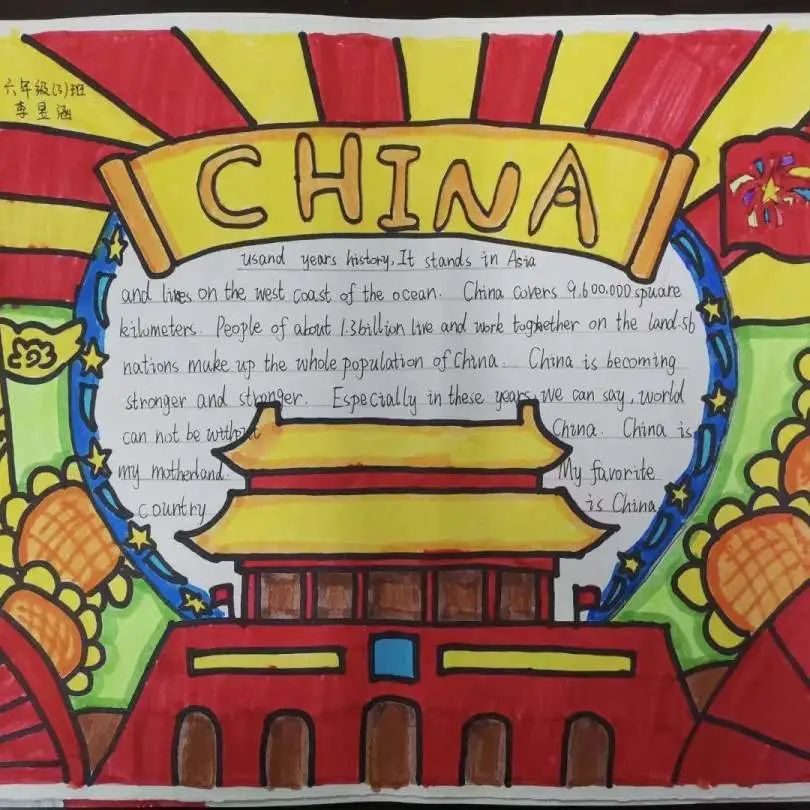 六年级(3)班
李昱涵
CHINA
usand years history, It stands in Asia
and lives on the west coast of the ocean. China covers 9.600.000 spuare
kilometers. People of about 1.3 billion live and work toghether on the land. 56
nations make up the whole population of China. China is becoming
stronger and stronger. Especially in these years, we can say, world
can not be without China. China is
my motherland. My favorite
country is China